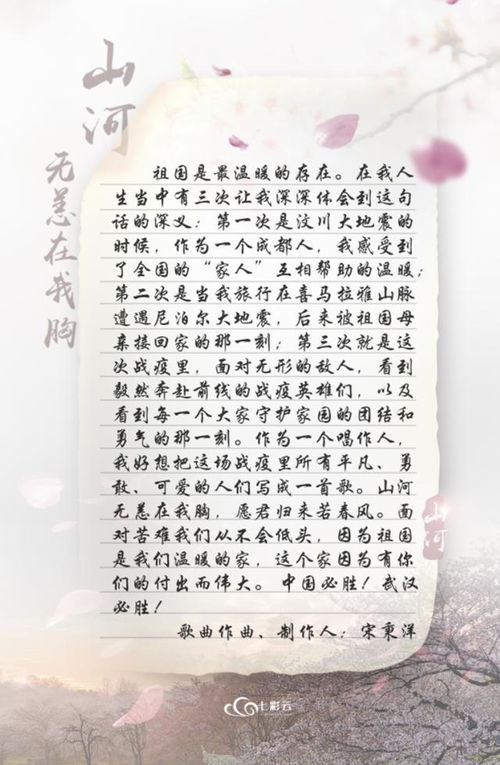 山河
无恙在我胸
祖国是最温暖的存在。在我人
生当中有三次让我深深体会到这句
话的深义：第一次是汶川大地震的
时候，作为一个成都人，我感受到
了全国的“家人”互相帮助的温暖；
第二次是当我旅行在喜马拉雅山脉
遭遇尼泊尔大地震，后来被祖国母
亲接回家的那一刻；第三次就是这
次战疫里，面对无形的敌人，看到
毅然奔赴前线的战疫英雄们，以及
看到每一个大家守护家园的团结和
勇气的那一刻。作为一个唱作人，
我好想把这场战疫里所有平凡、勇
敢、可爱的人们写成一首歌。山河
无恙在我胸，愿君归来若春风。面
对苦难我们从不会低头，因为祖国
是我们温暖的家，这个家因为有你
们的付出而伟大。中国必胜！武汉
必胜！
歌曲作曲、制作人：宋秉洋
山河
七彩云